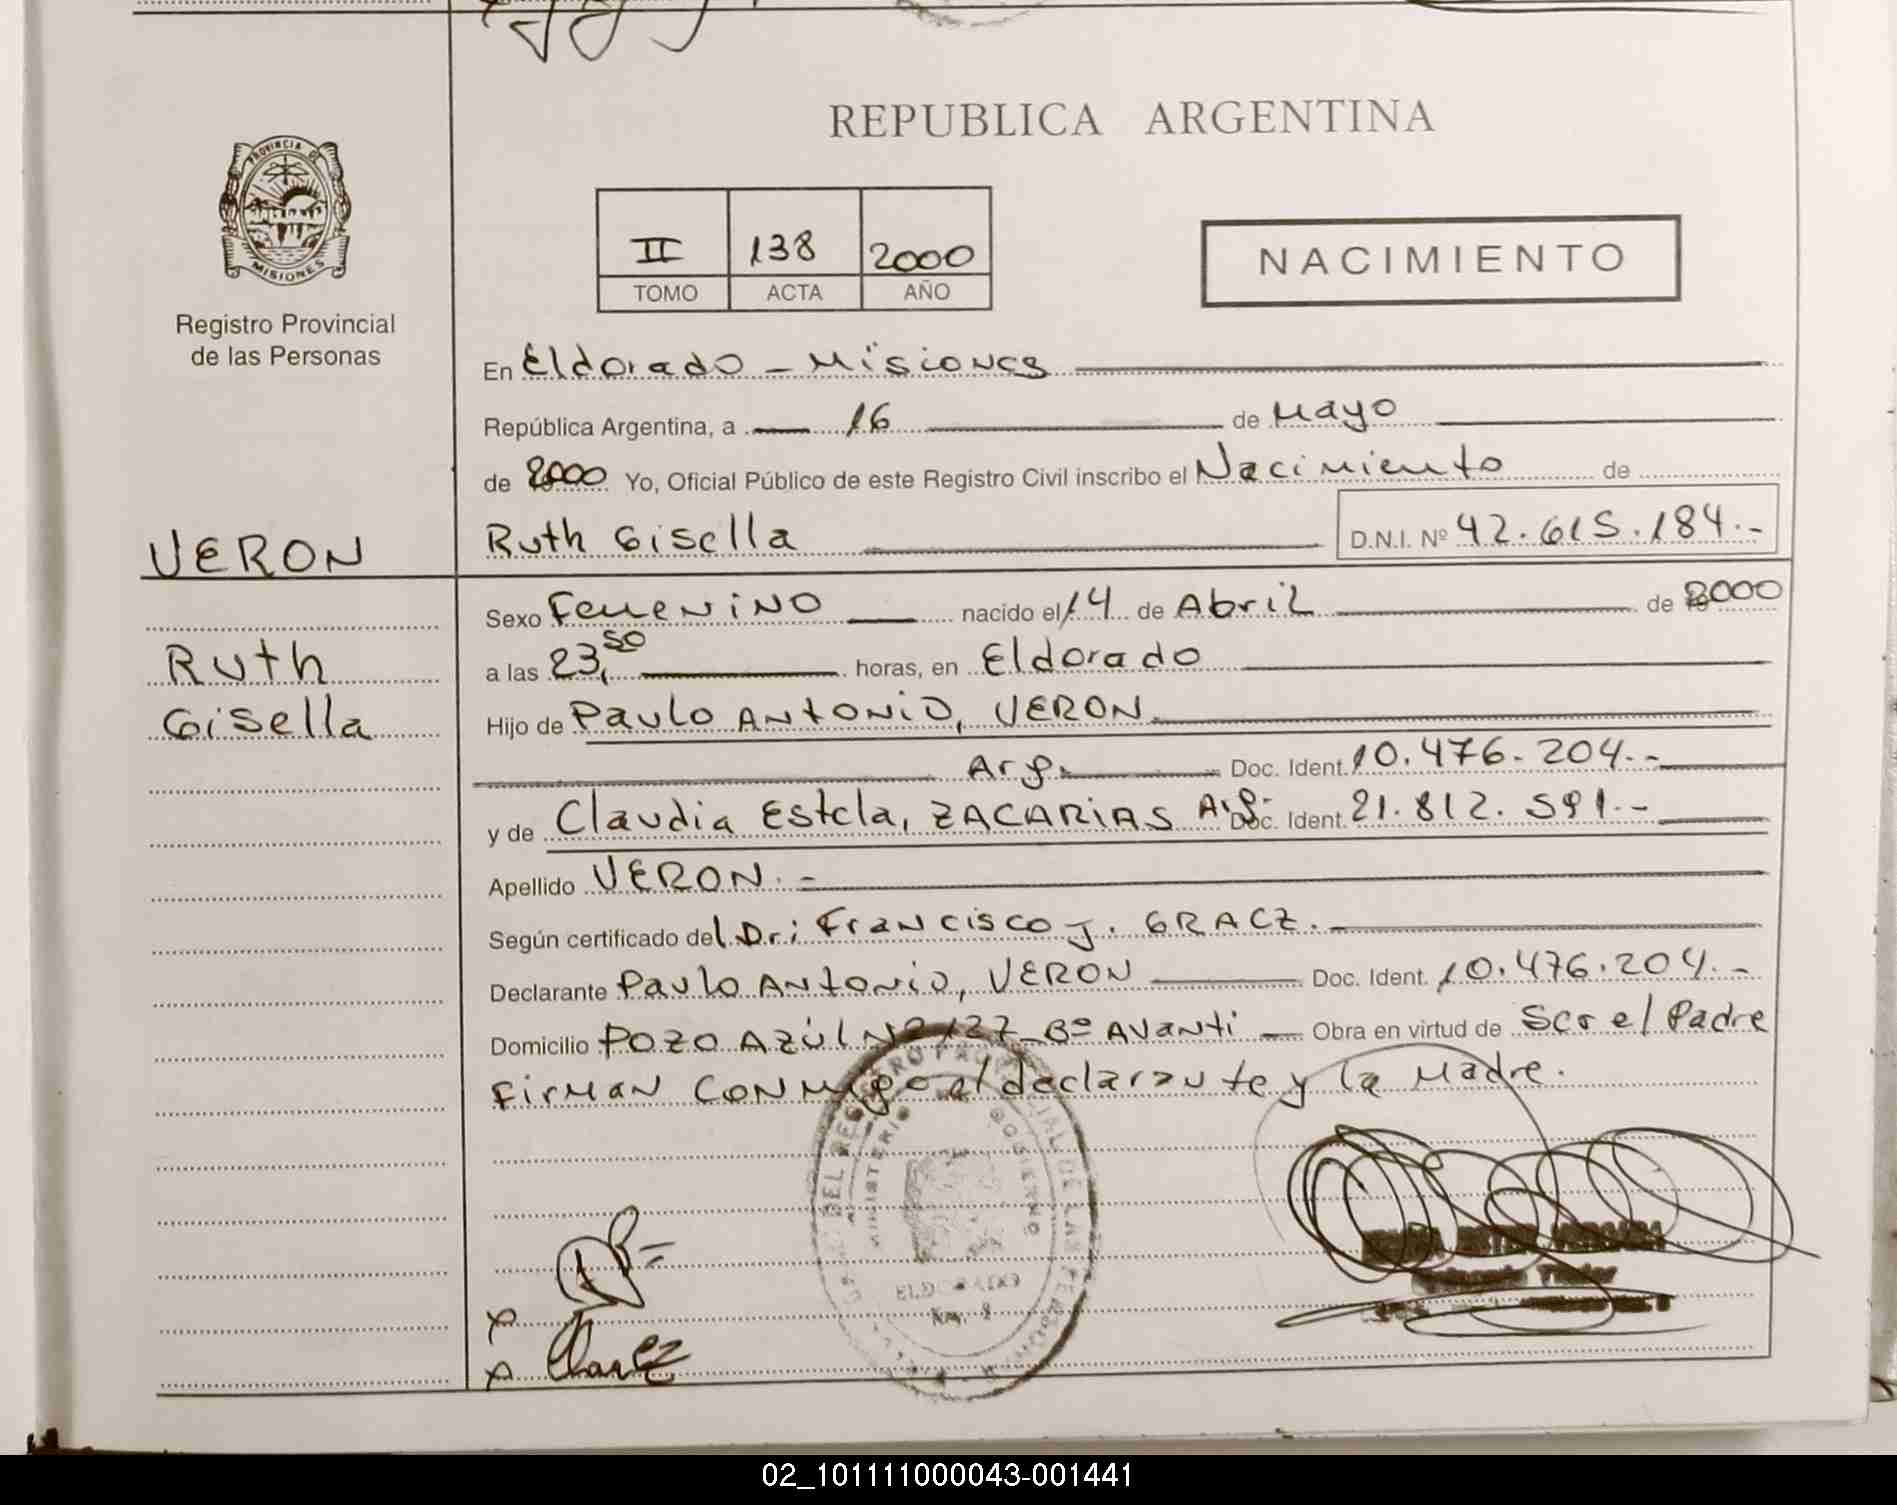 REPUBLICA ARGENTINA
PROVINCIA DE
MISIONES
Registro Provincial
de las Personas
II 138 2000
TOMO ACTA AÑO
NACIMIENTO
En Eldorado - Misiones
República Argentina, a 16 de Mayo
de 2000 Yo, Oficial Público de este Registro Civil inscribo el Nacimiento de
Ruth Gisella D.N.I. Nº 42.615.184.-
VERON
Ruth
Gisella
Sexo Femenino nacido el 14 de Abril de 2000
a las 23,50 horas, en Eldorado
Hijo de Paulo Antonio, VERON
Arg. Doc. Ident. 10.476.204.-
y de Claudia Estela, ZACARIAS Arg. Doc. Ident. 21.812.591.-
Apellido VERON.-
Según certificado del Dr; Francisco J. GRACZ.-
Declarante Paulo Antonio, VERON Doc. Ident. 10.476.204.-
Domicilio Pozo Azúl Nº 127 Bº Avanti Obra en virtud de Ser el Padre
Firman conmigo el declarante y la Madre.
MINISTERIO GOBIERNO
ELDORADO
02_101111000043-001441